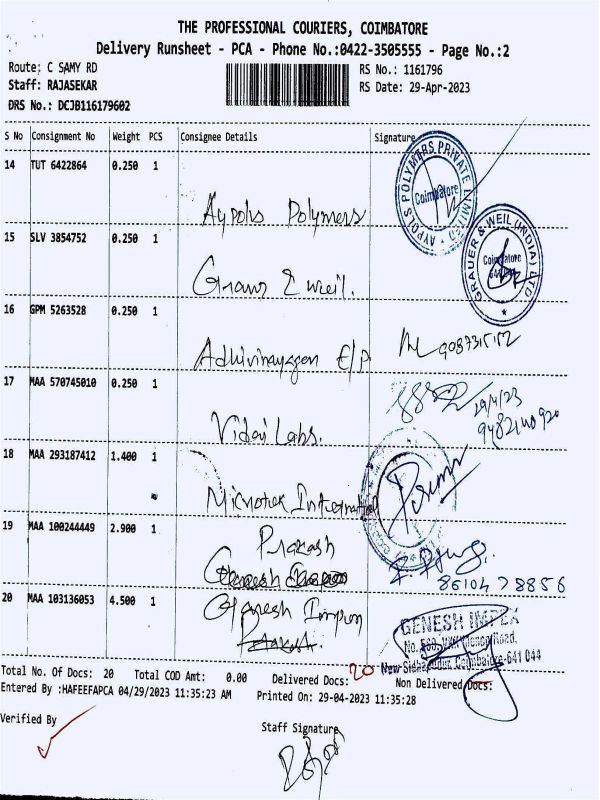 THE PROFESSIONAL COURIERS, COIMBATORE
Delivery Runsheet - PCA - Phone No.:0422-3505555 - Page No.:2
Route: C SAMY RD RS No.: 1161796
Staff: RAJASEKAR RS Date: 29-Apr-2023
DRS No.: DCJB116179602
S No Consignment No Weight PCS Consignee Details Signature
14 TUT 6422864 0.250 1
Aypols Polymers
AYPOLS POLYMERS PRIVATE LIMITED
Coimbatore
15 SLV 3854752 0.250 1
Graur & weil.
GRAUER & WEIL (INDIA) LTD
Coimbatore
16 GPM 5263528 0.250 1
Adhivinayagan E/P
9087315152
17 MAA 570745010 0.250 1
29/4/23
Labs.
18 MAA 293187412 1.400 1
Microtek International
19 MAA 100244449 2.900 1
Prakash
86104 78856
20 MAA 103136053 4.500 1
Ganesh Impex
GENESH IMPEX
Road,
Coimbatore-641 044
Total No. Of Docs: 20 Total COD Amt: 0.00 Delivered Docs: 20 Non Delivered Docs:
Entered By :HAFEEFAPCA 04/29/2023 11:35:23 AM Printed On: 29-04-2023 11:35:28
Verified By
Staff Signature